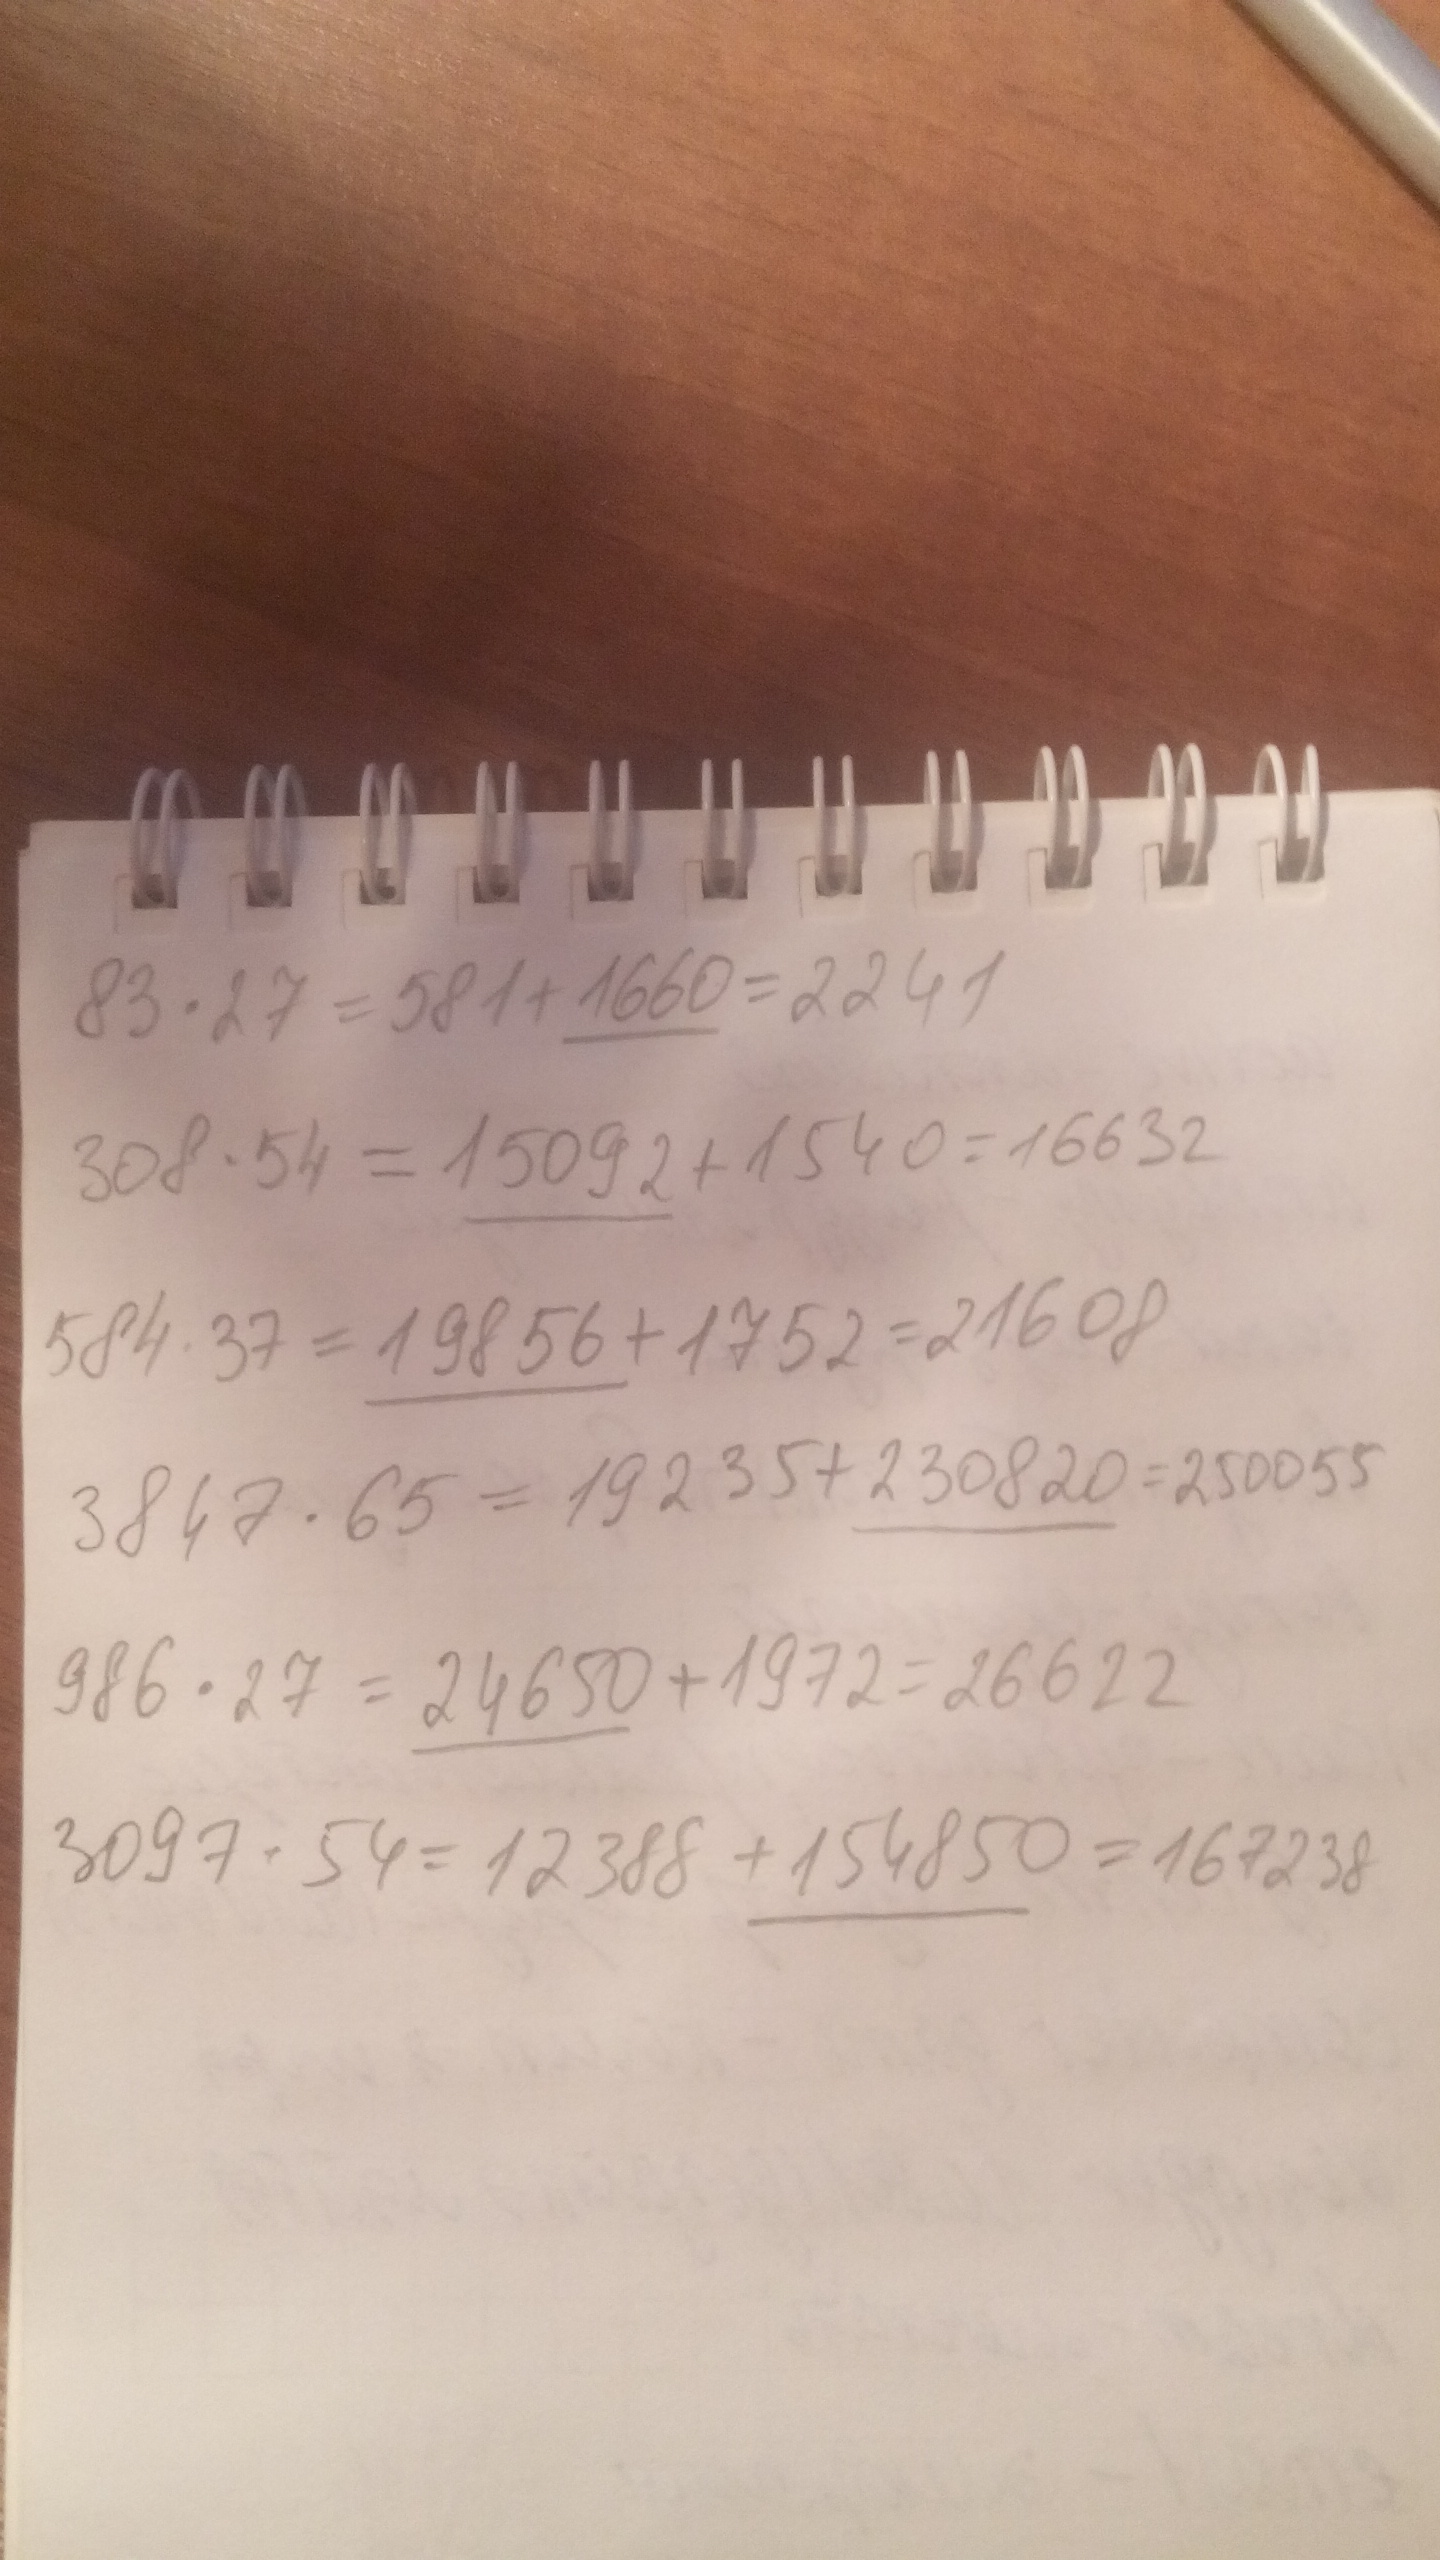 83·27=581+1660=2241
308·54=15092+1540=16632
584·37=19856+1752=21608
3847·65=19235+230820=250055
986·27=24650+1972=26622
3097·54=12388+154850=167238